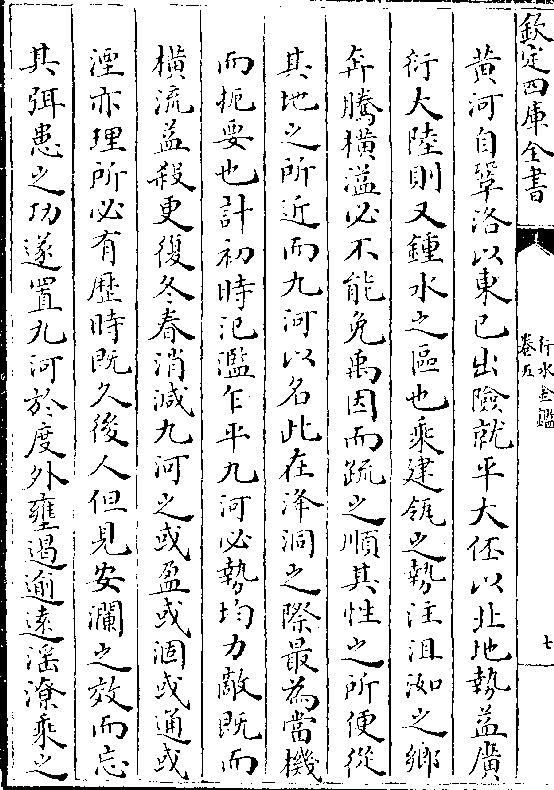 欽定四庫全書
行水金鑑
卷五
七
黃河自鞏洛以東已出險就平大伾以北地勢益廣
衍大陸則又鍾水之區也乘建瓴之勢注沮洳之鄉
奔騰橫溢必不能免禹因而疏之順其性之所便從
其地之所近而九河以名此在洚洞之際最為當機
而扼要也計初時氾濫乍平九河必勢均力敵既而
橫流益殺更復冬春消減九河之或盈或涸或通或
湮亦理所必有歴時既久後人但見安瀾之效而忘
其弭患之功遂置九河於度外壅遏逾遠淫潦乘之